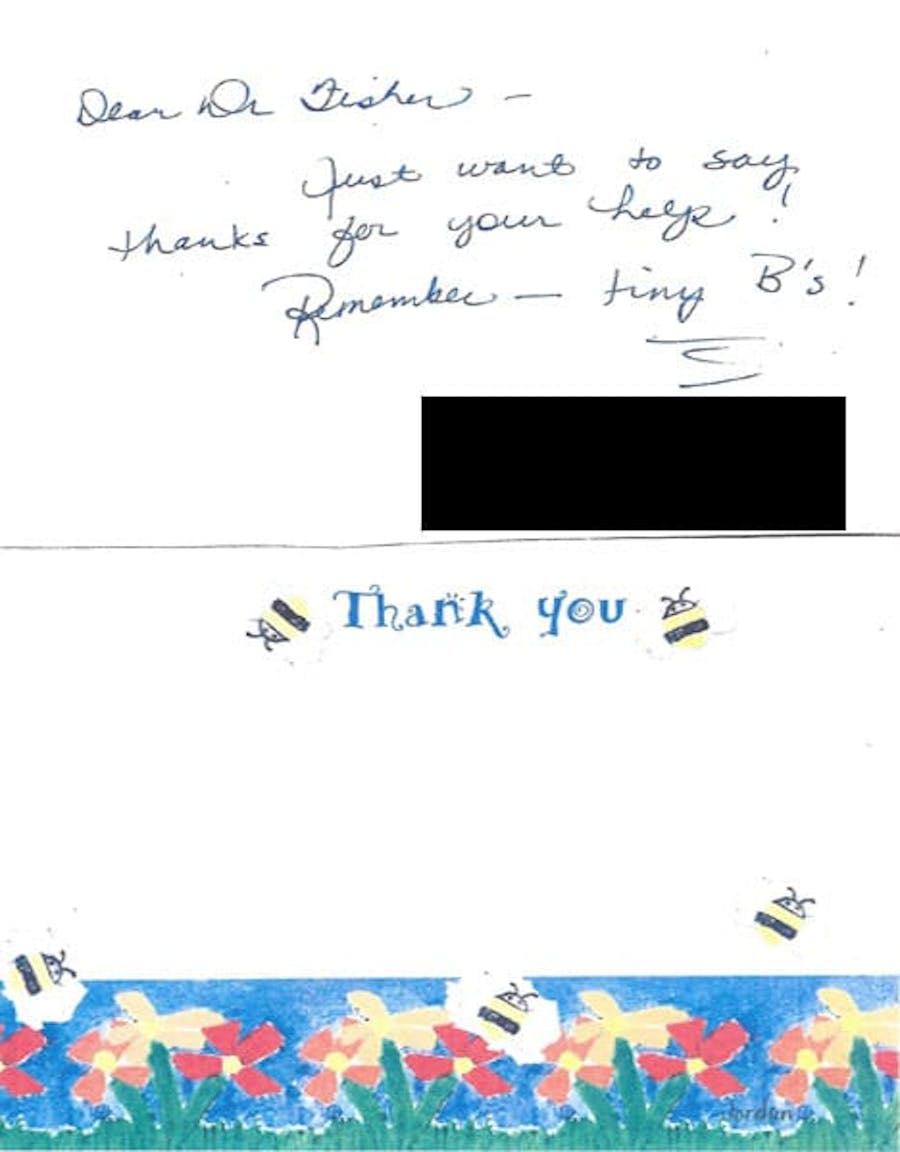 Dear Dr Fisher –
Just want to say
thanks for your help!
Remember — tiny B's!
Thank you
Jordan